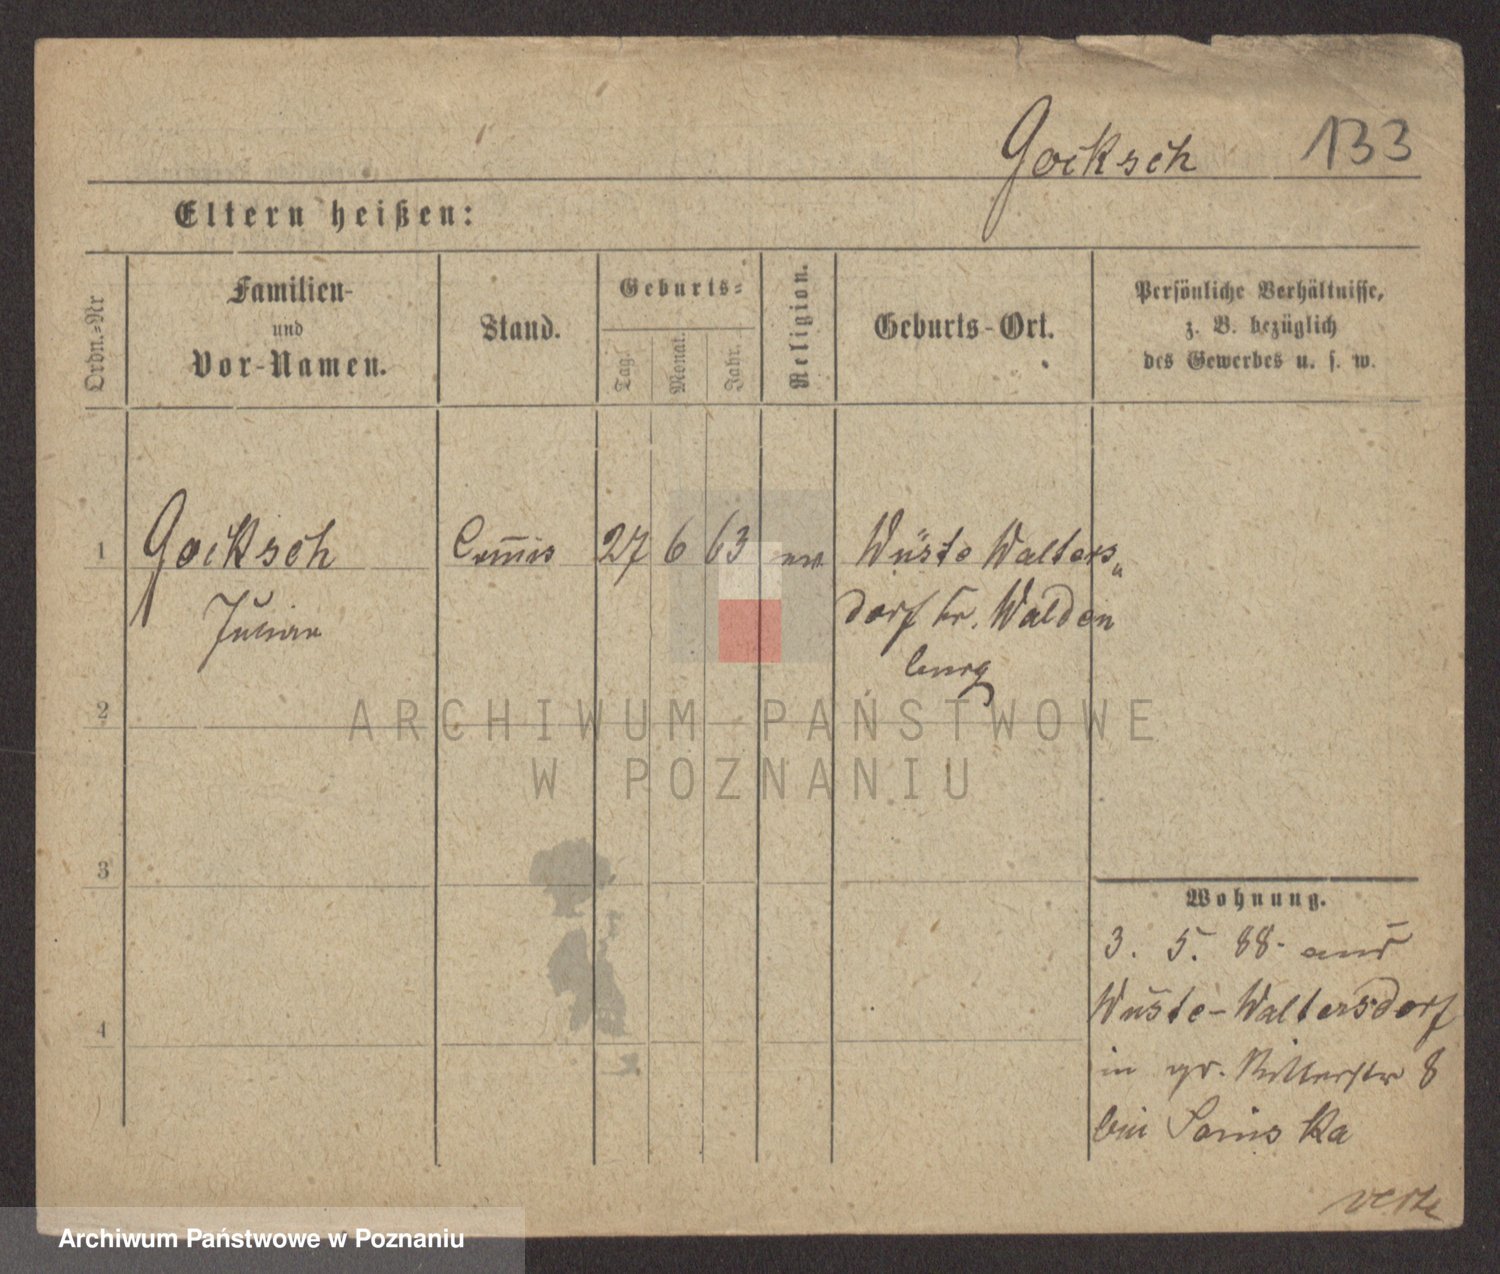 Gocksch 133
Eltern heißen:
Ordn.=Nr
Familien-
und
Vor-Namen.
Stand.
Geburts=
Tag.
Monat.
Jahr.
Religion.
Geburts-Ort.
Persönliche Verhältnisse,
z. B. bezüglich
des Gewerbes u. s. w.
1 Gocksch Commis 27 6 63 ev Wüste Walters„
Julian dorf Kr. Walden
burg
2
3
4
Wohnung.
3. 5. 88. aus
Wüste-Waltersdorf
in gr. Ritterstr 8
bei
ARCHIWUM PAŃSTWOWE
W POZNANIU
Archiwum Państwowe w Poznaniu